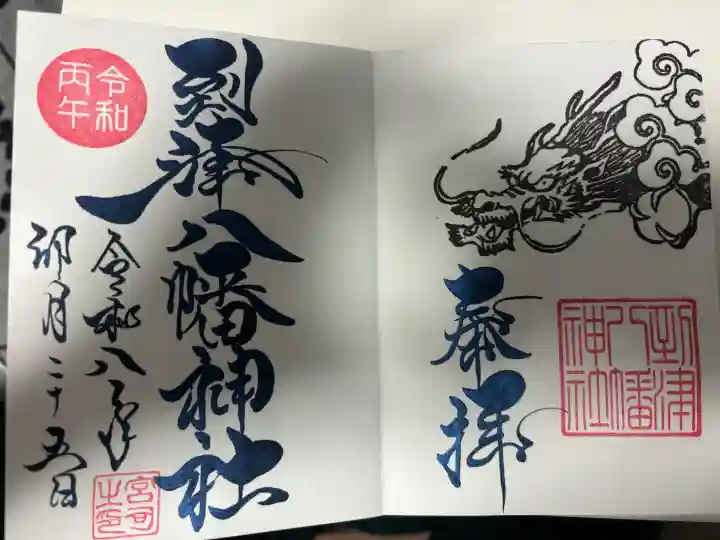 奉拝
到津
八幡
神社
到津八幡神社
令和
丙午
令和八年
卯月二十五日
宮司
之印